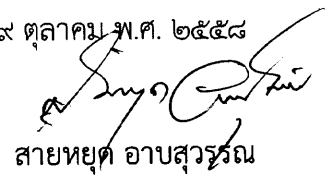 ๙ ตุลาคม พ.ศ. ๒๕๕๘
สายหยุด อาบสุวรรณ